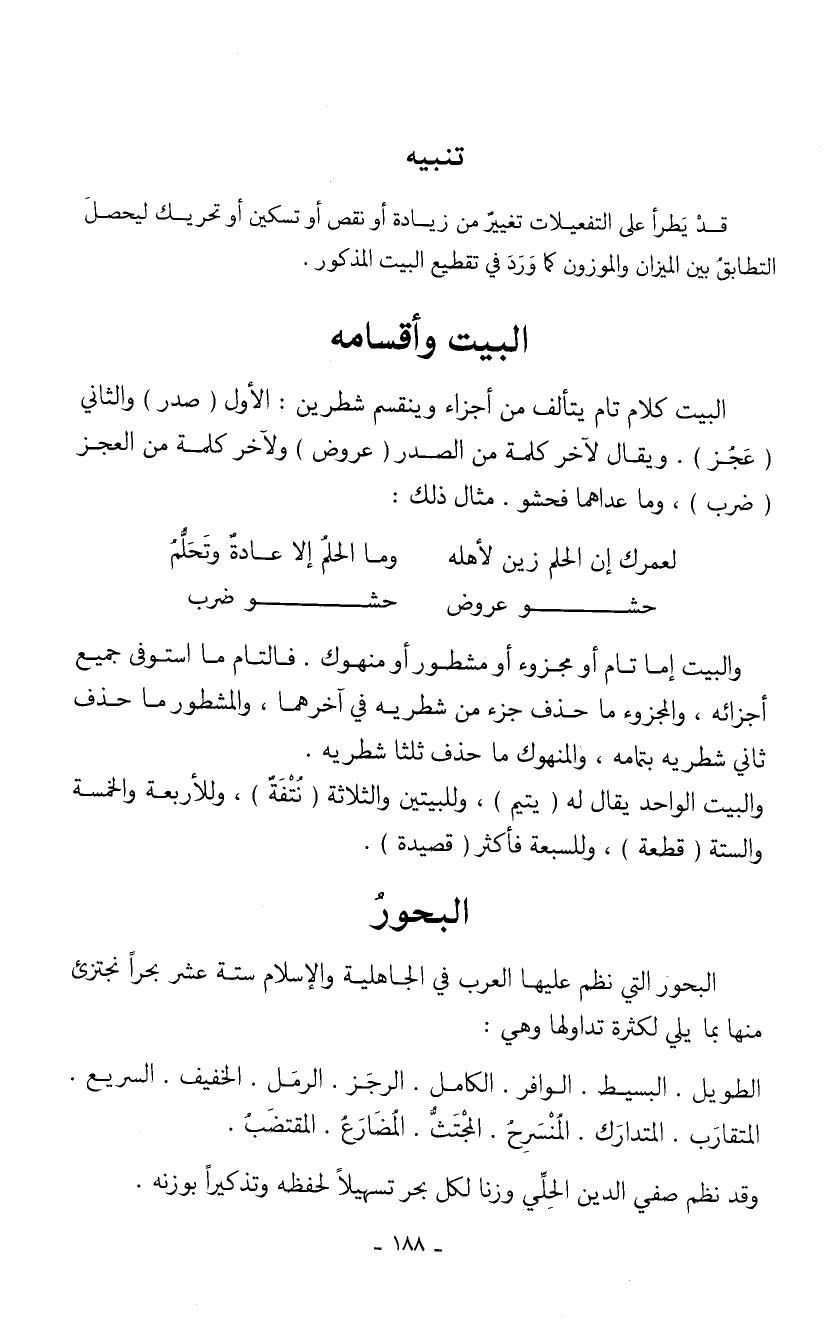 تنبيه
قـدْ يَطرأ على التفعيـلات تغييرٌ من زيـادة أو نقص أو تسكين أو تحريـك ليحصلَ
التطابقُ بين الميزان والموزون كما وَرَدَ في تقطيع البيت المذكور .
البيت وأقسامه
البيت كلام تام يتألف من أجزاء وينقسم شطرين : الأول ( صدر ) والثاني
( عَجُز ) . ويقـال لآخر كلمة من الصـدر ( عروض ) ولآخر كلمـة من العجـز
( ضرب ) ، وما عداهما فحشو . مثال ذلك :
لعمرك إن الحلم زين لأهله وما الحلمُ إلا عـادةٌ وتَحَلُّمُ
حشـــــــــو عروض حشـــــــــو ضرب
والبيت إمـا تـام أو مجزوء أو مشطـور أو منهوك . فـالتـام مـا استـوفى جميـع
أجزائه ، والمجزوء ما حـذف جزء من شطريـه في آخرهمـا ، والمشطور مـا حـذف
ثاني شطريه بتمامه ، والمنهوك ما حذف ثلثا شطريه .
والبيت الواحد يقال له ( يتيم ) ، وللبيتين والثلاثة ( نُتْفَةٌ ) ، وللأربعـة والخمسـة
والستة ( قطعة ) ، وللسبعة فأكثر ( قصيدة ) .
البحورُ
البحور التي نظم عليهـا العرب في الجـاهليـة والإسلام ستـة عشر بحراً نجتزئ
منها بما يلي لكثرة تداولها وهي :
الطويل . البسيـط . الـوافر . الكامـل . الرجَـز . الرمَـل . الخفيف . السريـع .
المتقارَب . المتدارَك . المُنْسَرِحُ . المُجْتَثُّ . المُضَارَعُ . المقتضَبُ .
وقد نظم صفي الدين الحِلِّي وزنا لكل بحر تسهيلاً لحفظه وتذكيراً بوزنه .
- ١٨٨ -